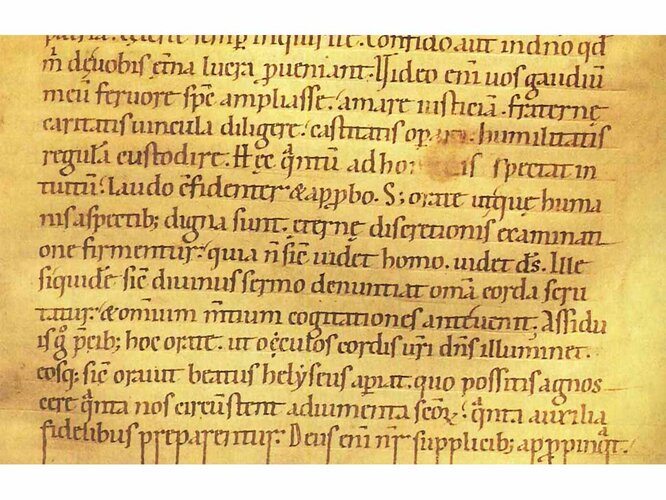 semp inquisiue. Confido aut in dno qđ
m̄ de uobis ęt̄na lucra p̱ueniant. Uideo eni͂ uos gaudiū
meū feruore spe͂ ampliasse. amare iusticiā. fraternę
caritatis uincula diligere. castitatis humilitatis
regulā custodire. Hęc q̄ntū ad spectat in
tuitū. laudo c̄fidenter & app̱bo. S; orate ut quę huma
nis aspectib; digna sunt. ęternę discretionis examinati
one firmentur. quia n̄ sic͂ uidet homo. uidet d͞s. Ille
siquide͂ sic͂ diuinus sermo denuntiat om͞a corda scru
tatur. & om͞ium m̄tium cogitationes Assidu
is g̊ p̄cib; hoc orate. ut oc̨culos cordis ur̄i dn͞s illuminet.
eosq; sic͂ orauit beatus helyseus apiat. quo possitis agnos
cere q̄nta nos circū stent adiumenta q̄nta auxilia
fidelibus preparentur. Deus eni͂ nr̄ supplicib; app̱pinq̄t.